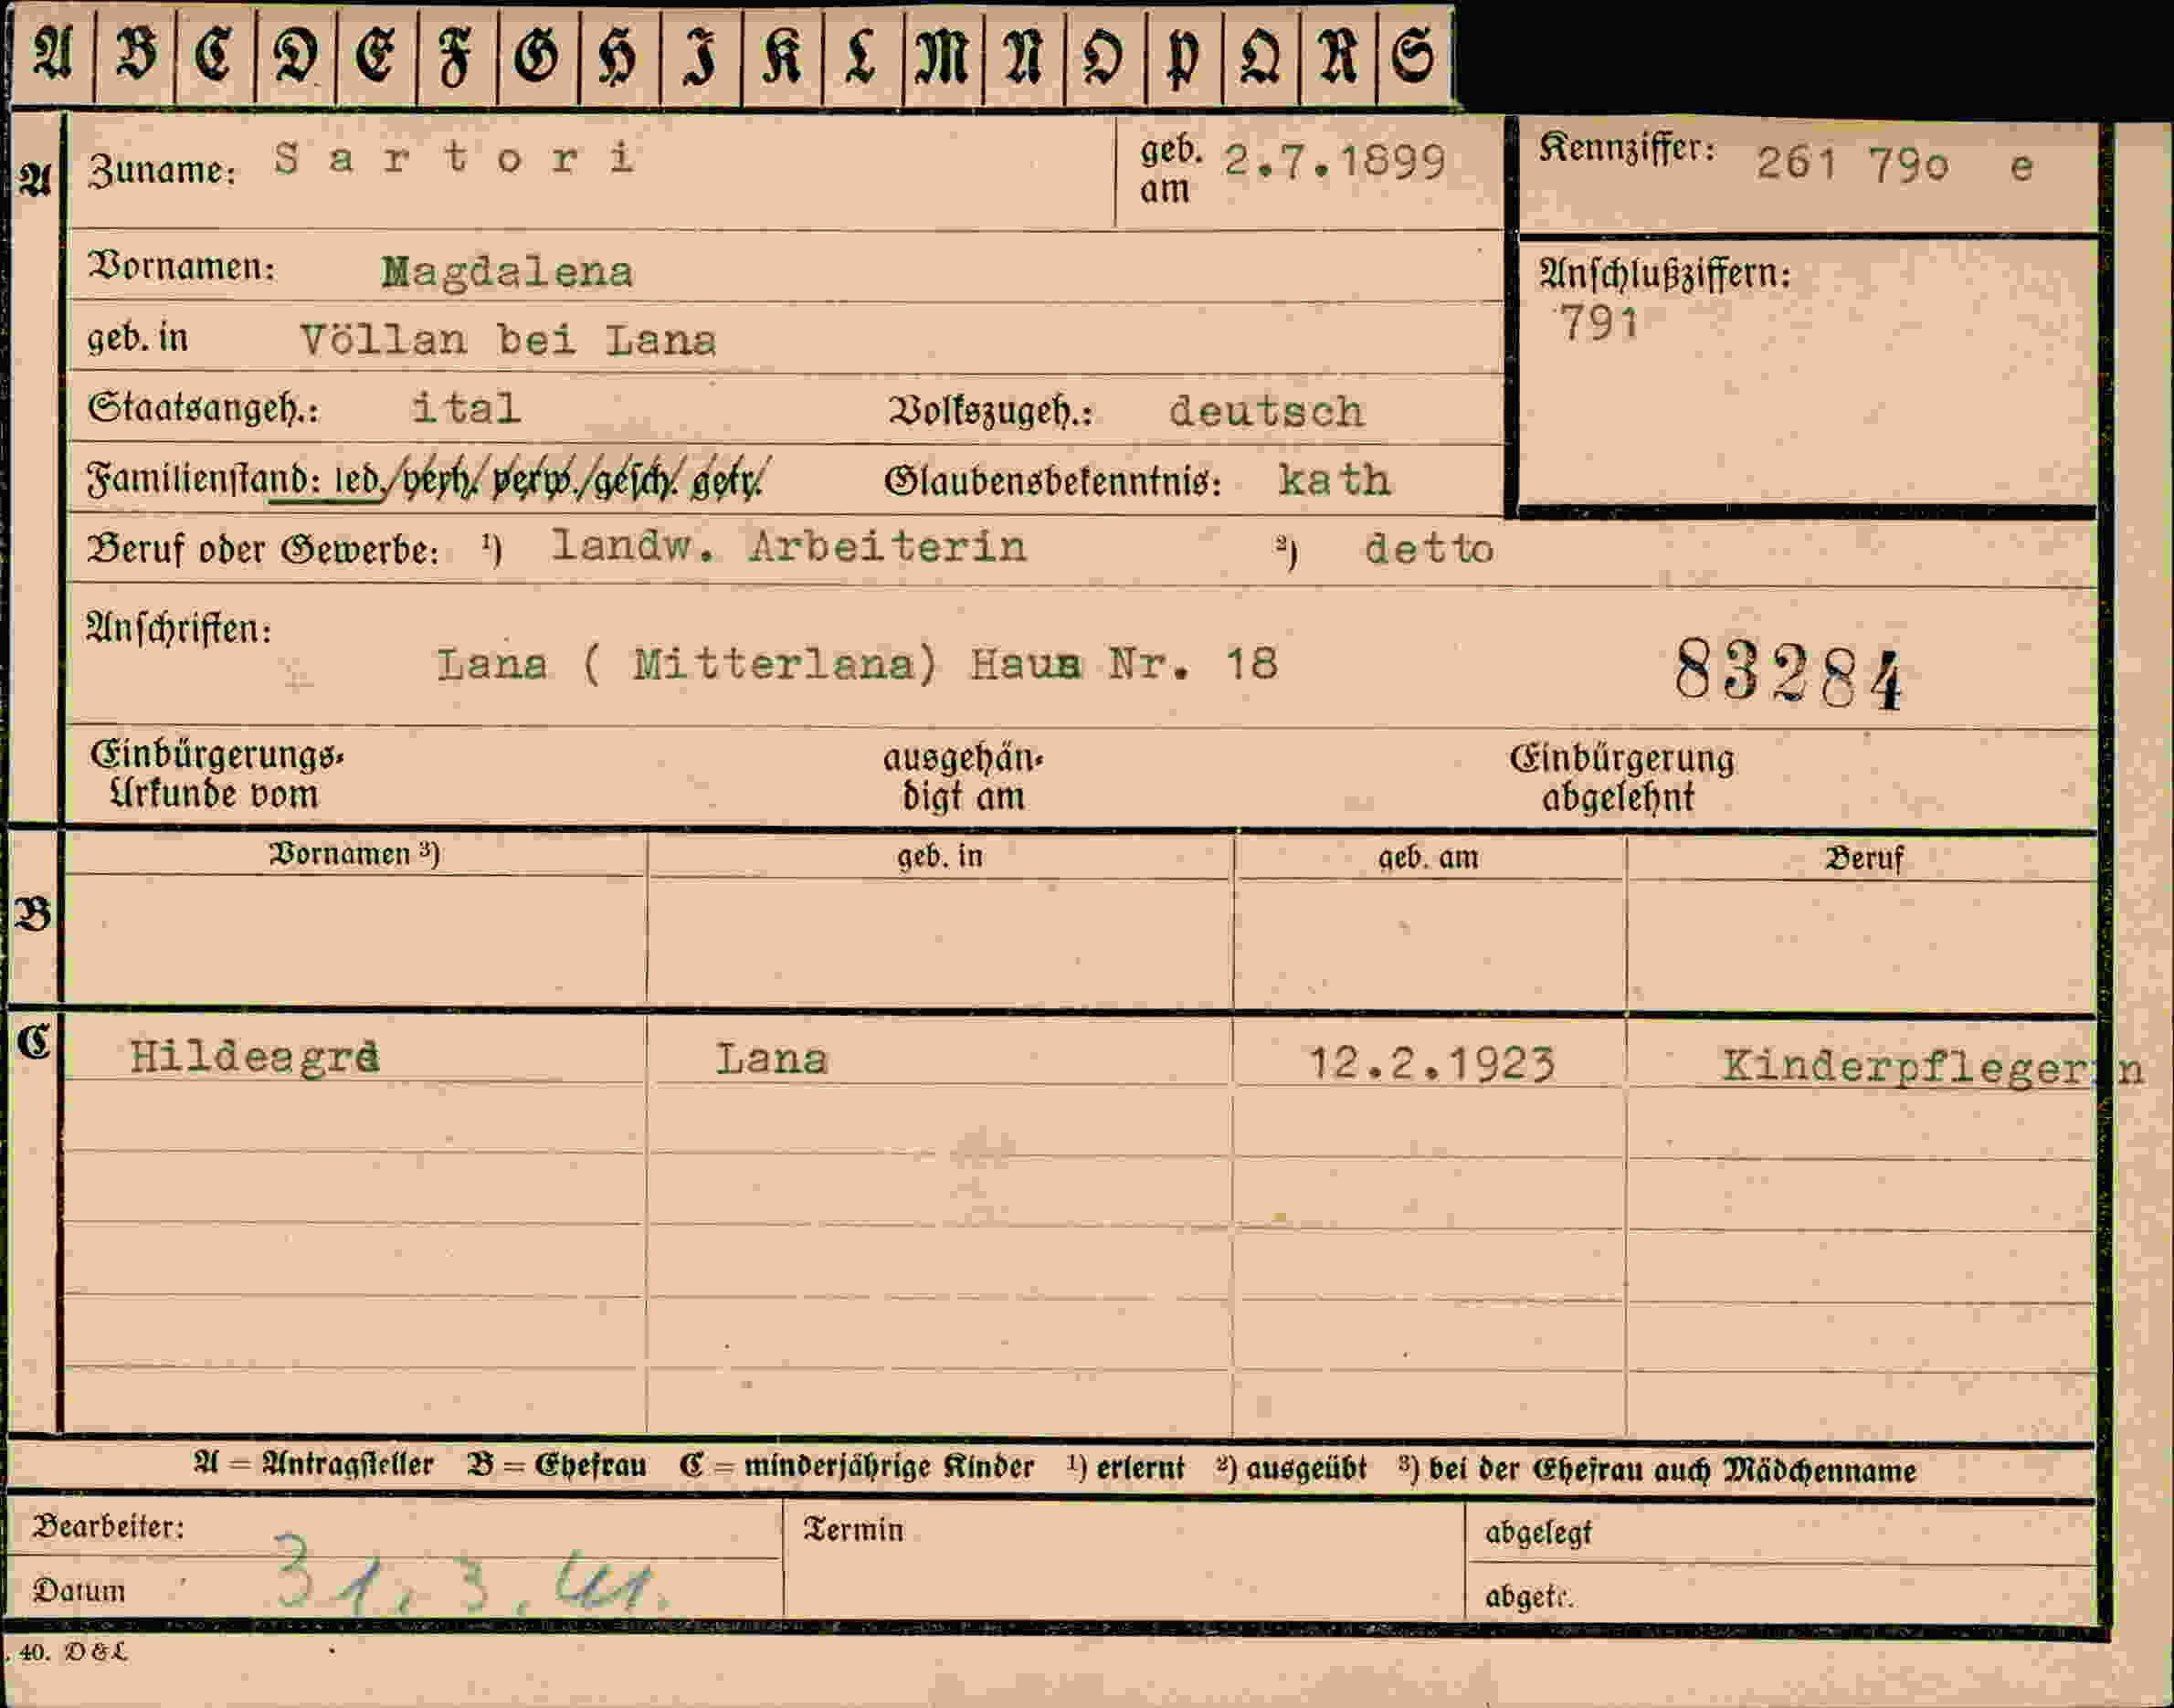 A B C D E F G H I K L M N O P Q R S
A Zuname: Sartori geb. am 2.7.1899 Kennziffer: 261 79o e
Vornamen: Magdalena Anschlußziffern:
791
geb. in Völlan bei Lana
Staatsangeh.: ital Volkszugeh.: deutsch
Familienstand: led./verh./verw./gesch./getr. Glaubensbekenntnis: kath
Beruf oder Gewerbe: ¹) landw. Arbeiterin ²) detto
Anschriften:
Lana ( Mitterlana) Haus Nr. 18 83284
Einbürgerungs-Urkunde vom ausgehändigt am Einbürgerung abgelehnt
Vornamen ³) geb. in geb. am Beruf
B
C Hildeagrd Lana 12.2.1923 Kinderpflegerin
A = Antragsteller B = Ehefrau C = minderjährige Kinder ¹) erlernt ²) ausgeübt ³) bei der Ehefrau auch Mädchenname
Bearbeiter: Termin abgelegt
Datum 31. 3. 41. abgetr.
. 40. D & L